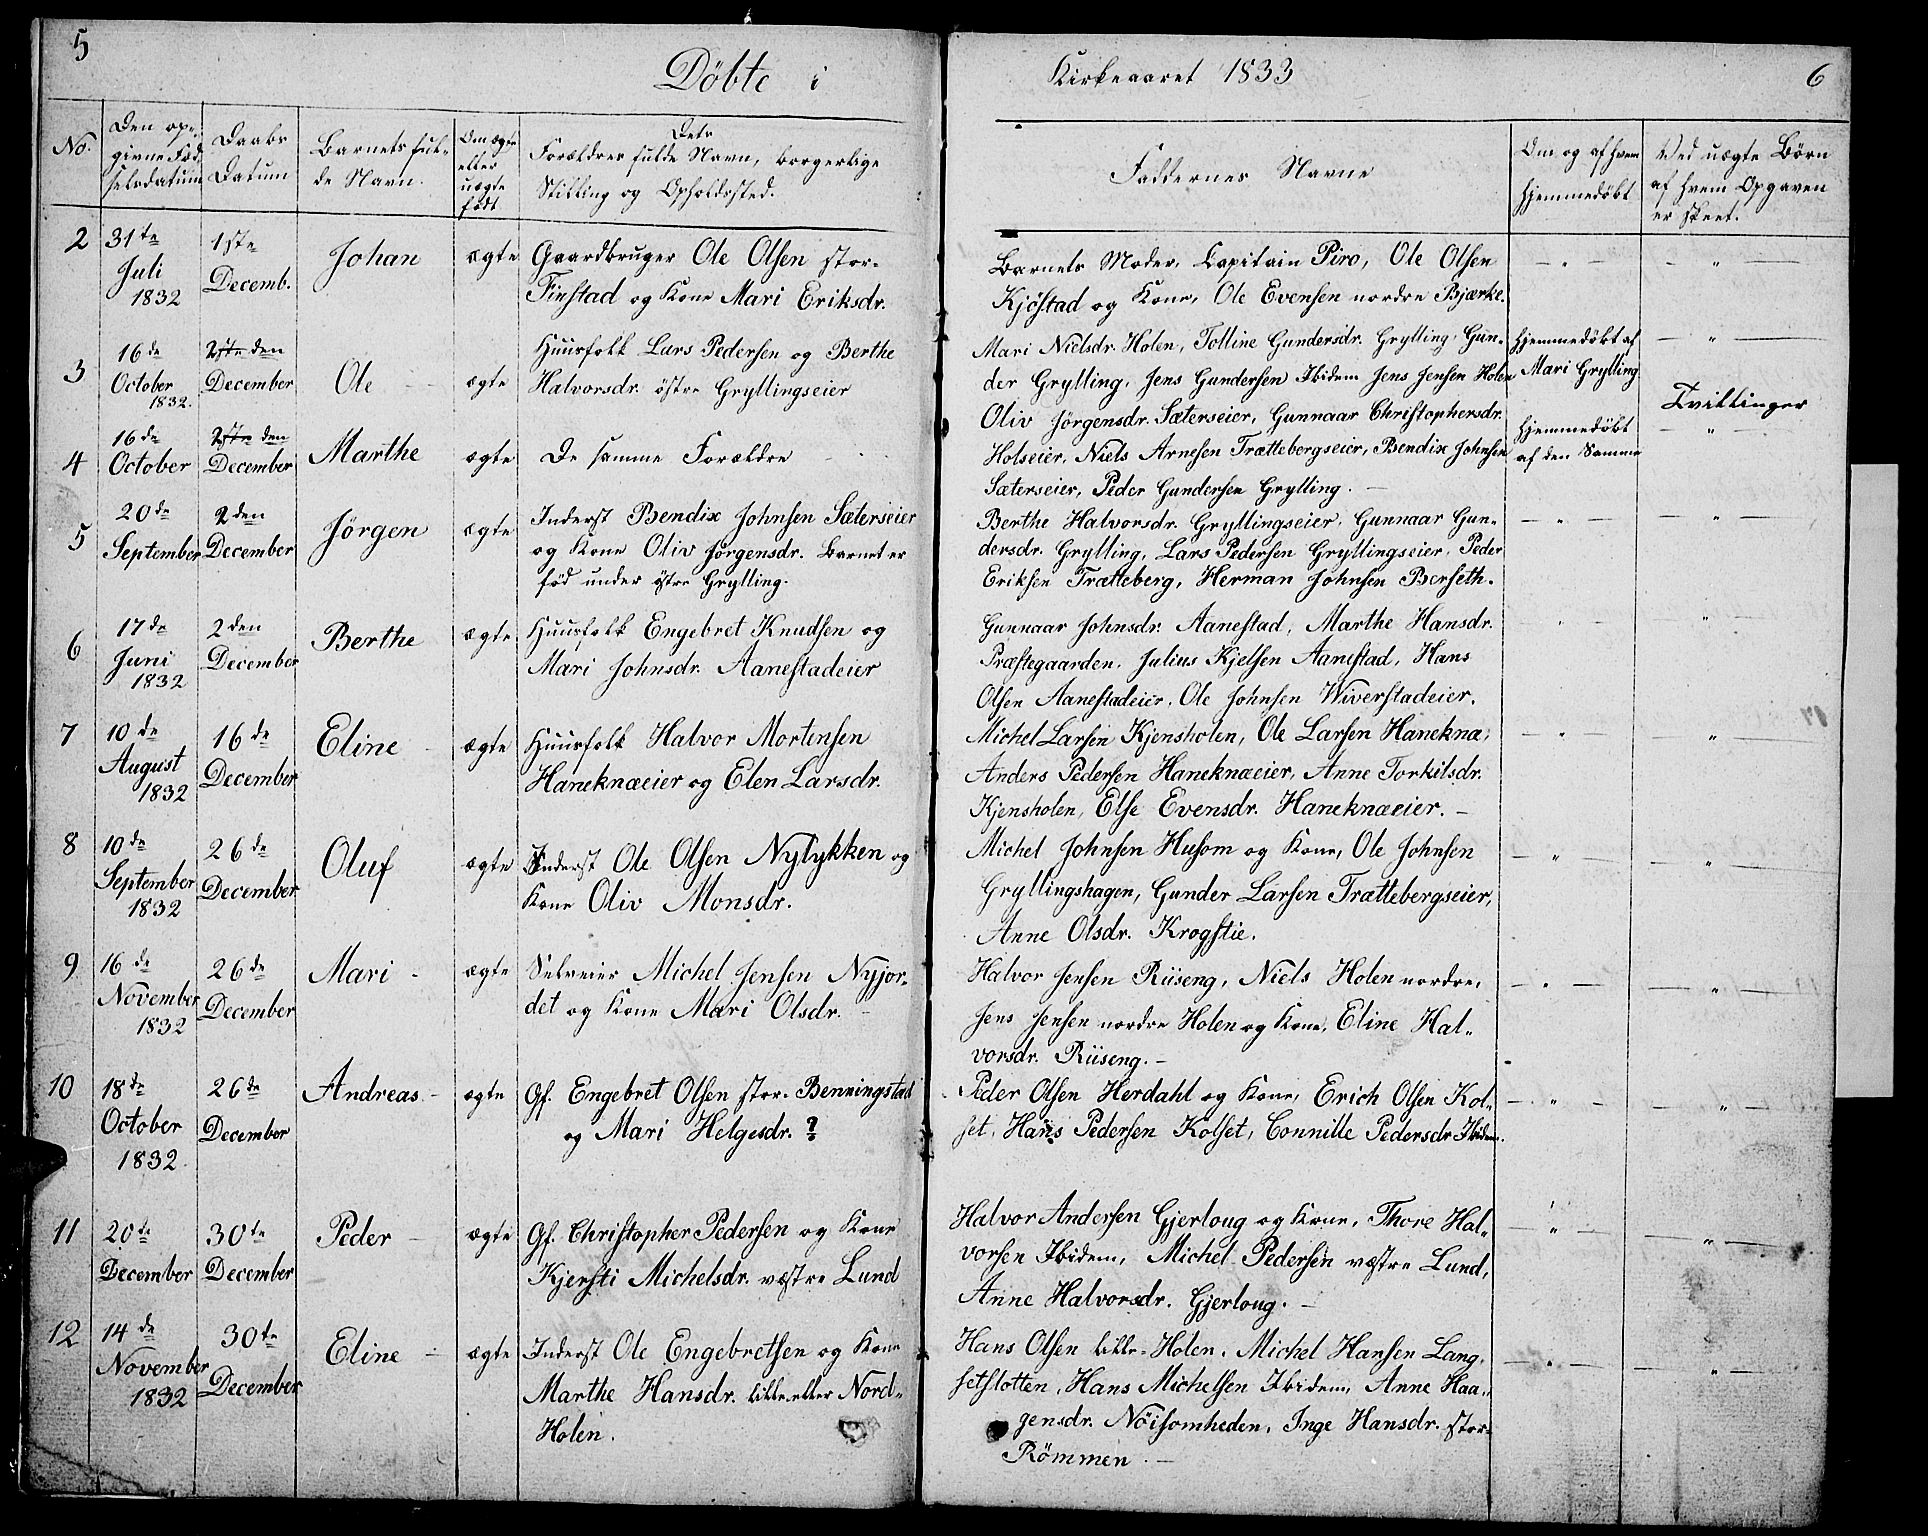 5
Döbte i
Kirkeaaret 1833
6
No.
Den op-
givne Fød-
selsdatum
Daabs
Datum
Barnets ful-
de Navn.
Om ægte
eller
uægte
født
Dets
Forældres fulde Navn, borgerlige
Stilling og Opholdssted.
Faddernes Navne
Om og af hvem
hjemmedøbt
Ved uægte Börn
af hvem Opgaven
er skeet.
2
31te
Juli
1832
1ste
Decemb.
Johan
ægte
Gaardbruger Ole Olsen stor-
Finstad og Kone Mari Eriksdr.
Barnets Moder, Capitain Piro, Ole Olsen
Kjöstad og Kone, Ole Evensen nordre Bjærke.
3
16de
October
1832.
2den
December
Ole
ægte
Huusfolk Lars Pedersen og Berthe
Halvorsdr. östre Gryllingseier
Mari Nielsdr. Holen, Tolline Gundersdr. Grylling, Gun-
der Grylling, Jens Gundersen Ibidem Jens Jensen Holen
hjemmedöbt af
Mari Grylling
4
16de
October
2den
December
Marthe
ægte
De samme Forældre
Oliv Jörgensdr. Sæterseier, Gunnaar Christophersdr.
Holseier, Niels Arnesen Trættebergseier, Bendix Johnsen
Sæterseier, Peder Gundersen Grylling.
hjemmedöbt
af den Samme
Tvillinger
5
20de
September
2den
December
Jörgen
ægte
Inderst Bendix Johnsen Sæterseier
og Kone Oliv Jörgensdr. Barnet er
fød under östre Grylling.
Berthe Halvorsdr. Gryllingseier, Gunnaar Gun-
dersdr. Grylling, Lars Pedersen Gryllingseier, Peder
Eriksen Trætteberg, Herman Johnsen Berseth.
6
17de
Juni
1832
2den
December
Berthe
ægte
Huusfolk Engebret Knudsen og
Mari Johnsdr. Aanestadeier
Gunnaar Johnsdr. Aanestad, Marthe Hansdr.
Præstegaarden, Julius Kjelsen Aanestad, Hans
Olsen Aanestadeier, Ole Johnsen Wiverstadeier.
7
10de
August
1832
16de
December
Eline
ægte
Huusfolk Halvor Mortensen
Haneknæeier og Elen Larsdr.
Michel Larsen Kjensholen, Ole Larsen Haneknæ,
Anders Pedersen Haneknæeier, Anne Torkilsdr.
Kjensholen, Else Evensdr. Haneknæeier.
8
10de
September
1832
26de
December
Oluf
ægte
Inderst Ole Olsen Nylykken og
Kone Oliv Monsdr.
Michel Johnsen Husom og Kone, Ole Johnsen
Gryllingshagen, Gunder Larsen Trættebergseier,
Anne Olsdr. Krogstie.
9
16de
November
1832
26de
December
Mari
ægte
Selveier Michel Jensen Nyjor-
det og Kone Mari Olsdr.
Halvor Jensen Riiseng, Niels Holen nordre,
Jens Jensen nordre Holen og Kone, Eline Hal-
vorsdr. Riiseng.
10
18de
October
1832
26de
December
Andreas
ægte
Gf. Engebret Olsen stor-Benningstad
og Mari Helgesdr. ?
Peder Olsen Herdahl og Kone, Erich Olsen Kol-
set, Hans Pedersen Kolset, Connille Pedersdr Ibidem.
11
20de
December
30te
December
Peder
ægte
Gf. Christopher Pedersen og Kone
Kjersti Michelsdr. væstre Lund
Halvor Andersen Gjerloug og Kone, Thore Hal-
vorsen Ibidem, Michel Pedersen væstre Lund,
Anne Halvorsdr. Gjerloug.
12
14de
November
1832
30te
December
Eline
ægte
Inderst Ole Engebretsen og Kone
Marthe Hansdr. lille eller Nord-
Holen.
Hans Olsen lille-Holen, Michel Hansen Lang-
setslotten, Hans Michelsen Ibidem, Anne Haa-
gensdr. Nöisomheden, Inge Hansdr. stor-
Römmen